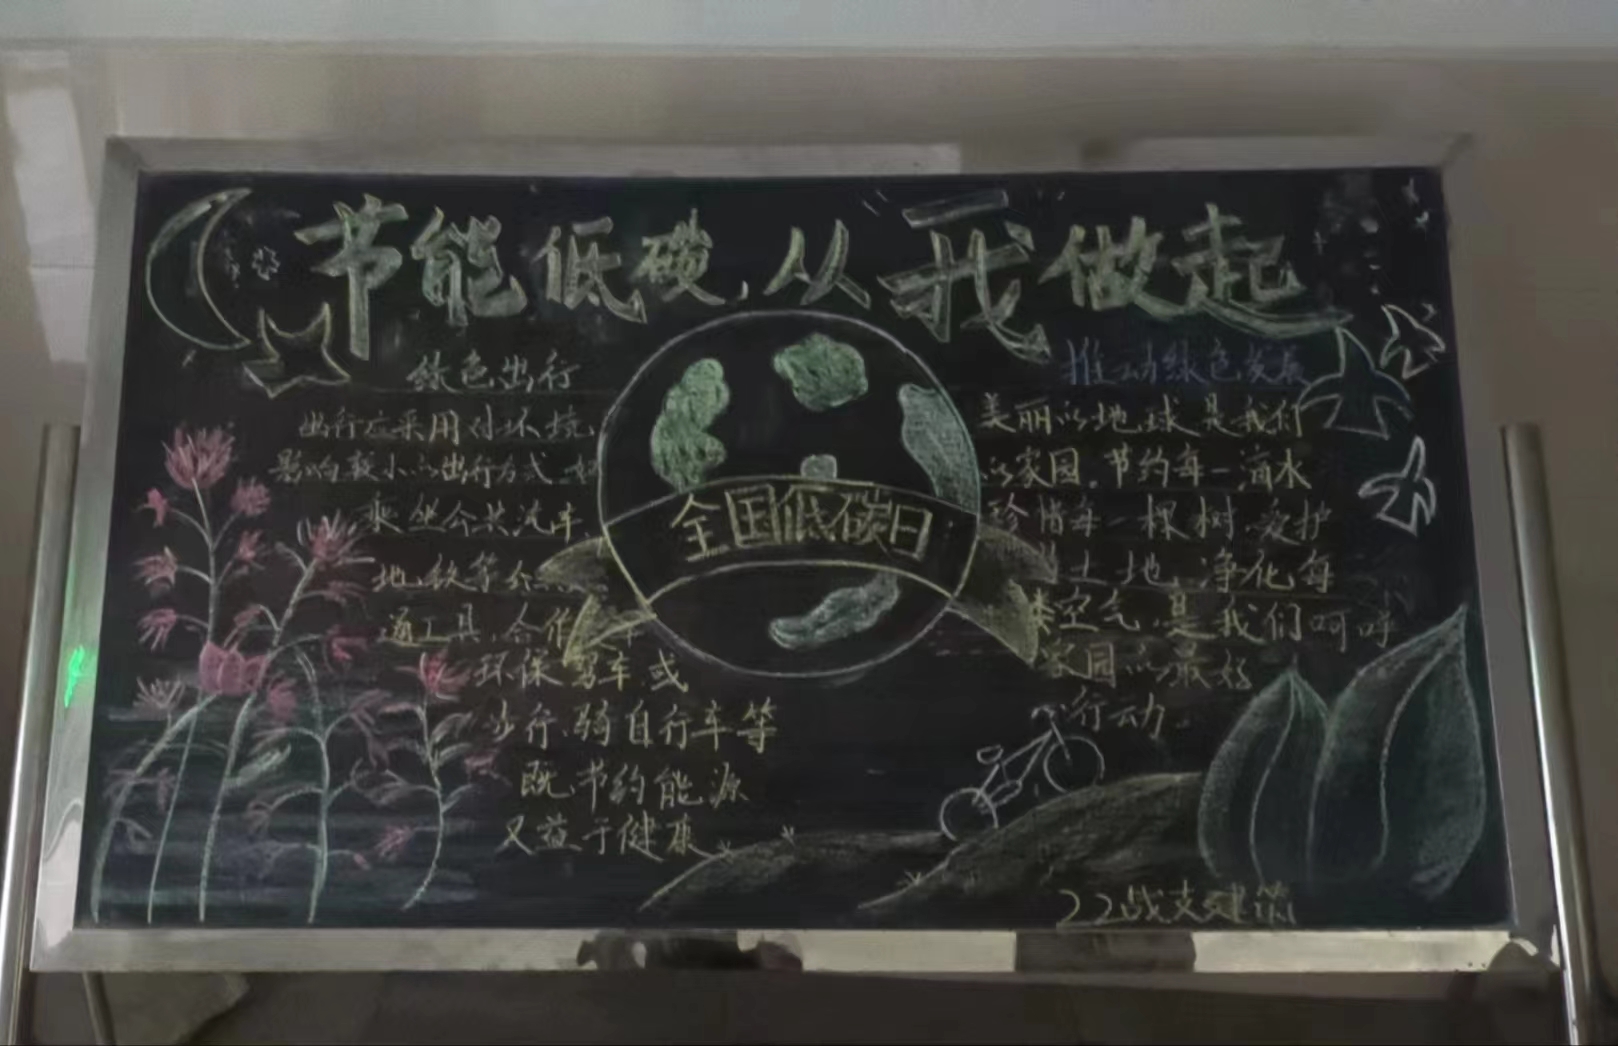 节能低碳,从我做起
绿色出行
出行应采用对环境
影响较小的出行方式.如
乘坐公共汽车、
地铁等公
通工具,合作
环保驾车.或
步行、骑自行车等
既节约能源
又益于健康
全国低碳日
推动绿色发展
美丽的地球是我们
的家园.节约每一滴水
珍惜每一棵树.爱护
土地,净化每
空气,是我们呵呼
家园的最好
行动。
22战支建筑